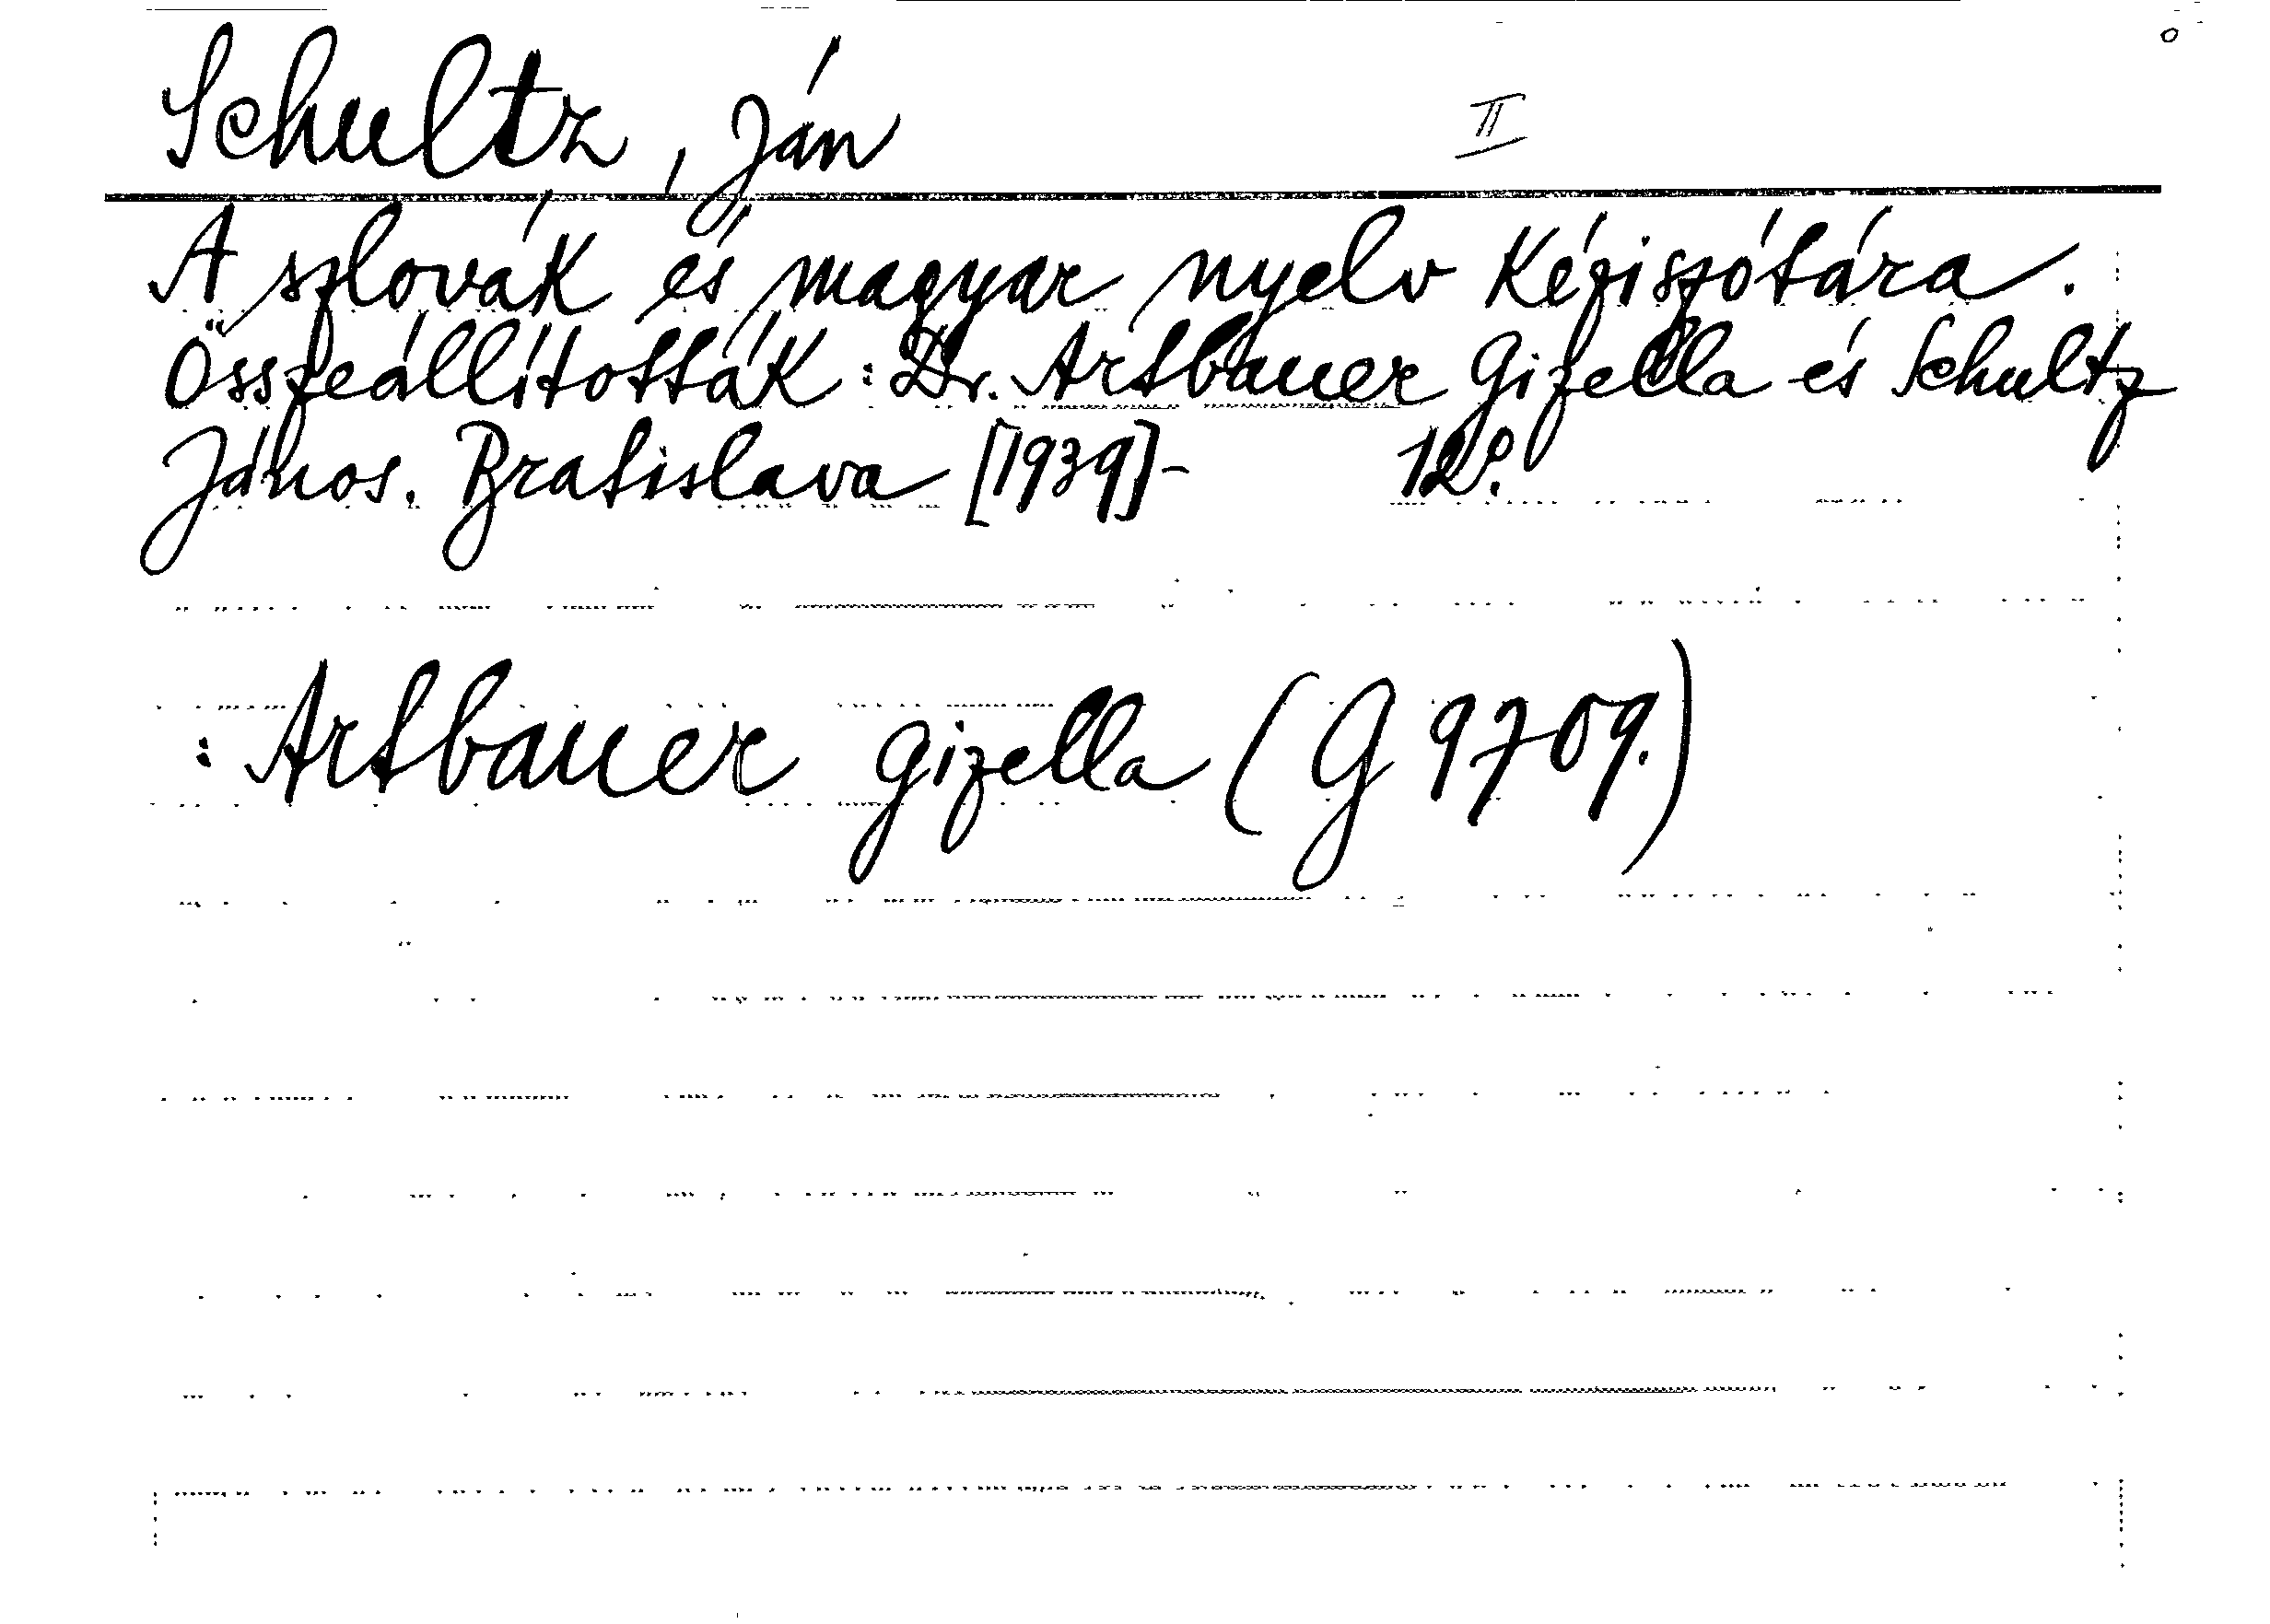 Schultz, Ján II
A szlovák és magyar nyelv kéziszótára.
Összeállították: Dr. Artbauer Gizella és Schultz
János. Bratislava [1939]- 12º.
: Artbauer Gizella (G 9709.)